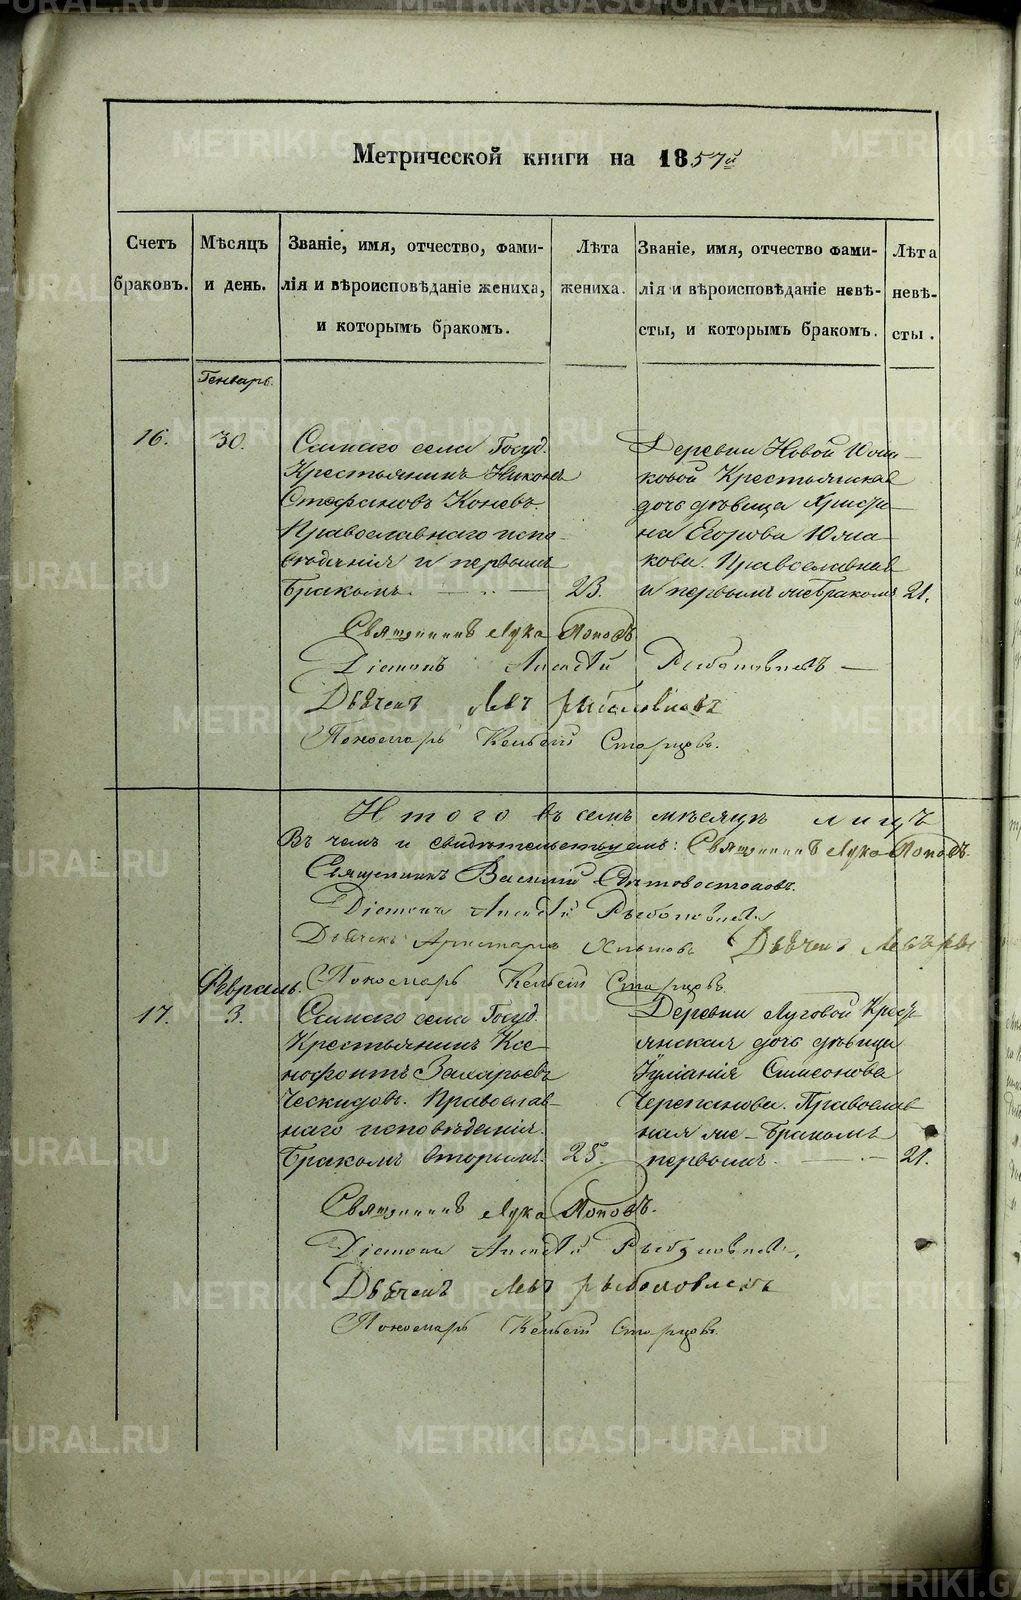 Метрической книги на 1857й
Счетъ браковъ.
Мѣсяцъ и день.
Званіе, имя, отчество, фами-
лія и вѣроисповѣданіе жениха,
и которымъ бракомъ.
Лѣта жениха.
Званіе, имя, отчество фами-
лія и вѣроисповѣданіе невѣ-
сты, и которымъ бракомъ.
Лѣта невѣ-
сты.
Генварь.
16.
30.
Самаго села Госуд.
Крестьянинъ Никонъ
Стефановъ Коневъ.
Православнаго испо-
вѣданія и первымъ
бракомъ.
23.
Деревни Новой Юша-
ковой Крестьянская
дочь дѣвица Христи-
на Егорова Юша-
кова. Православная
и первымъ же бракомъ
21.
Священникъ Лука Поповъ
Діаконъ Алексѣй Рыболовлевъ
Дьячекъ Левъ Рыболовлевъ
Пономарь Старцовъ.
Итого въ семъ мѣсяцѣ лицъ
Въ чемъ и свидѣтельствуемъ: Священникъ Лука Поповъ.
Священникъ Василій
Діаконъ Алексѣй Рыболовлевъ
Дьячекъ Аристархъ Дьячекъ Левъ
Пономарь Старцовъ.
Февраль.
17.
3.
Самаго села Госуд.
Крестьянинъ Ксе-
нофонтъ Захарьевъ
Ческидовъ. Православ-
наго исповѣданія.
бракомъ вторымъ.
25.
Деревни Луговой Крест-
янская дочь дѣвица
Іуліанія Симеонова
Черепанова. Православ-
ная же бракомъ
первымъ.
21.
Священникъ Лука Поповъ.
Діаконъ Алексѣй Рыболовлевъ.
Дьячекъ Левъ Рыболовлевъ
Пономарь Старцовъ.
METRIKI.GASO-URAL.RU